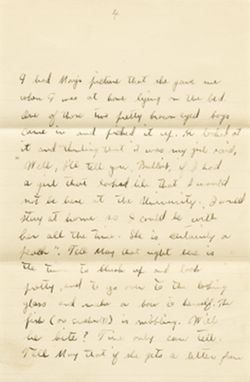 4
I had May's picture that she gave me
when I was at home lying on the bed.
One of those two pretty brown eyed boys
came in and picked it up. He looked at
it and thinking that it was my girl said,
"Well, I'll tell you, Bullet, if I had
a girl that looked like that I would
not be here at the University. I would
stay at home so I could be with
her all the time. She is certainly a
peach". Tell May that right here is
the time to blush up and look
pretty, and to go over to the looking
glass and make a bow to herself. The
fish (or sucker?) is nibbling. Will
he bite? Time only can tell.
Tell May that if she gets a letter from